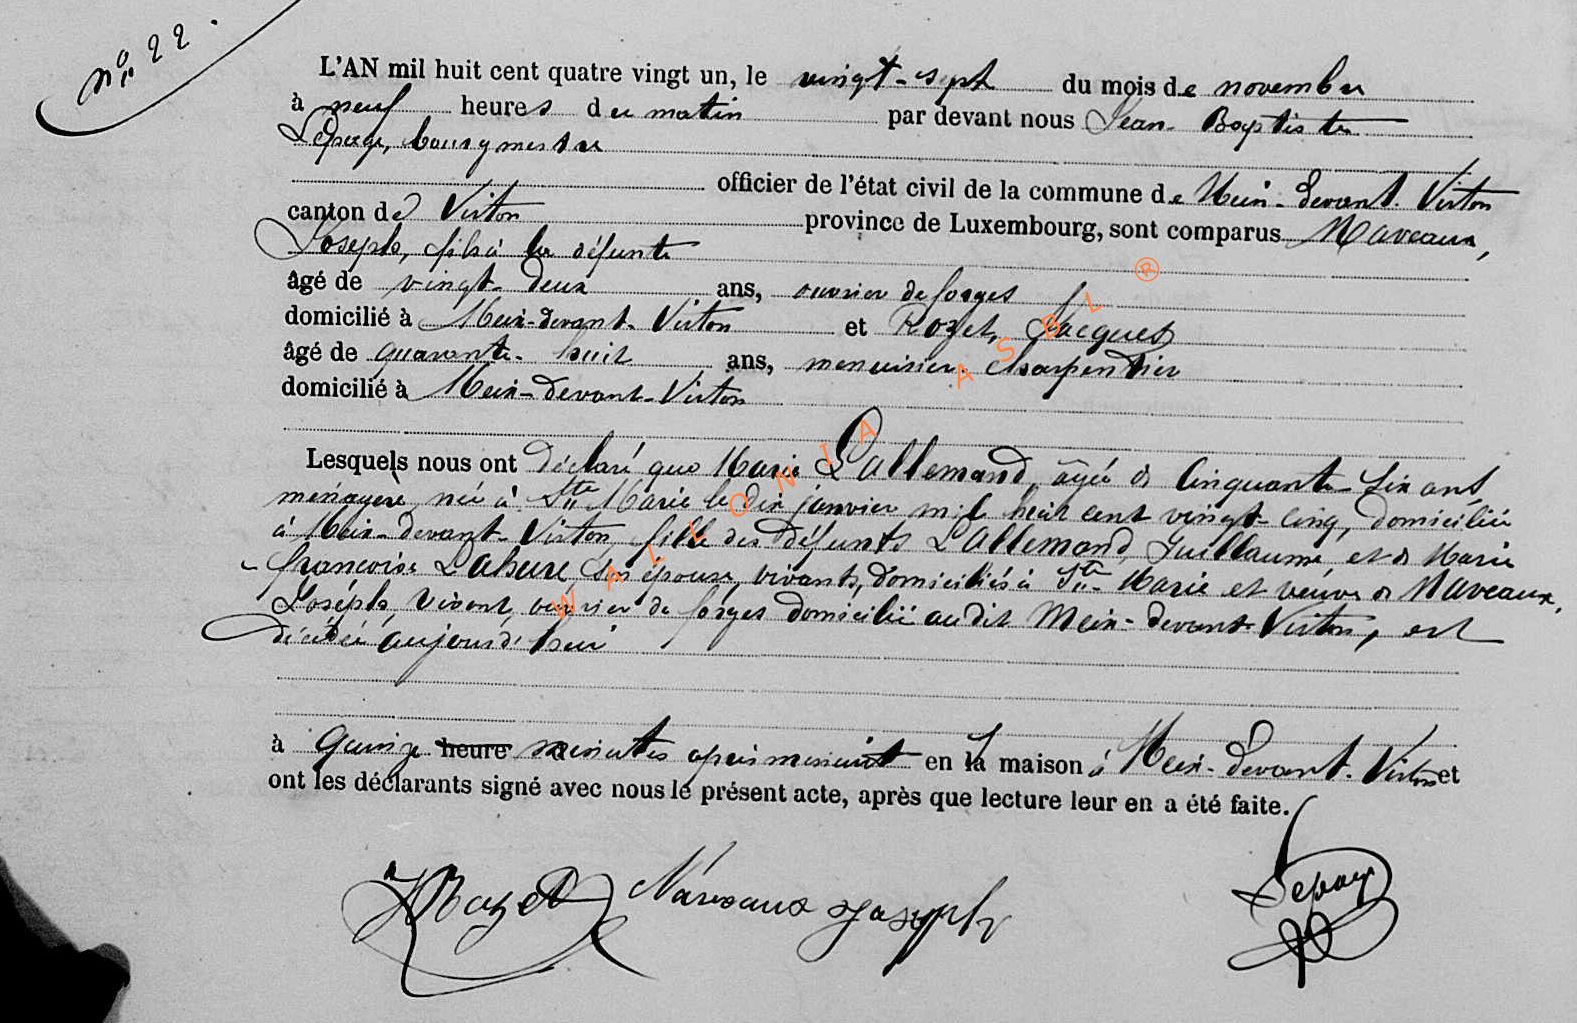 N° 22.
L'AN mil huit cent quatre vingt un, le vingt-sept du mois de novembre
à neuf heures du matin par devant nous Jean-Baptiste
Lepage, bourgmestre
officier de l'état civil de la commune de Meix-devant-Virton
canton de Virton province de Luxembourg, sont comparus Mareaux,
Joseph, fils à la défunte
âgé de vingt-deux ans, ouvrier de forges
domicilié à Meix-devant-Virton et Rozet, Jacques
âgé de quarante-huit ans, menuisier-charpentier
domicilié à Meix-devant-Virton
Lesquels nous ont déclaré que Marie Lallemand, âgée de cinquante-six ans
ménagère, née à Ste Marie le dix janvier mil huit cent vingt-cinq, domiciliée
à Meix-devant-Virton, fille des défunts Lallemand, Guillaume et de Marie
françoise Lahure son épouse, vivants, domiciliés à Ste Marie et veuve de Mareaux,
Joseph, vivant, ouvrier de forges domicilié audit Meix-devant-Virton, est
décédée aujourd'hui
à quinze heure minutes après minuit en la maison à Meix-devant-Virton et
ont les déclarants signé avec nous le présent acte, après que lecture leur en a été faite.
JRozet Mareaux joseph Lepage
WALLONIA ASBL ®